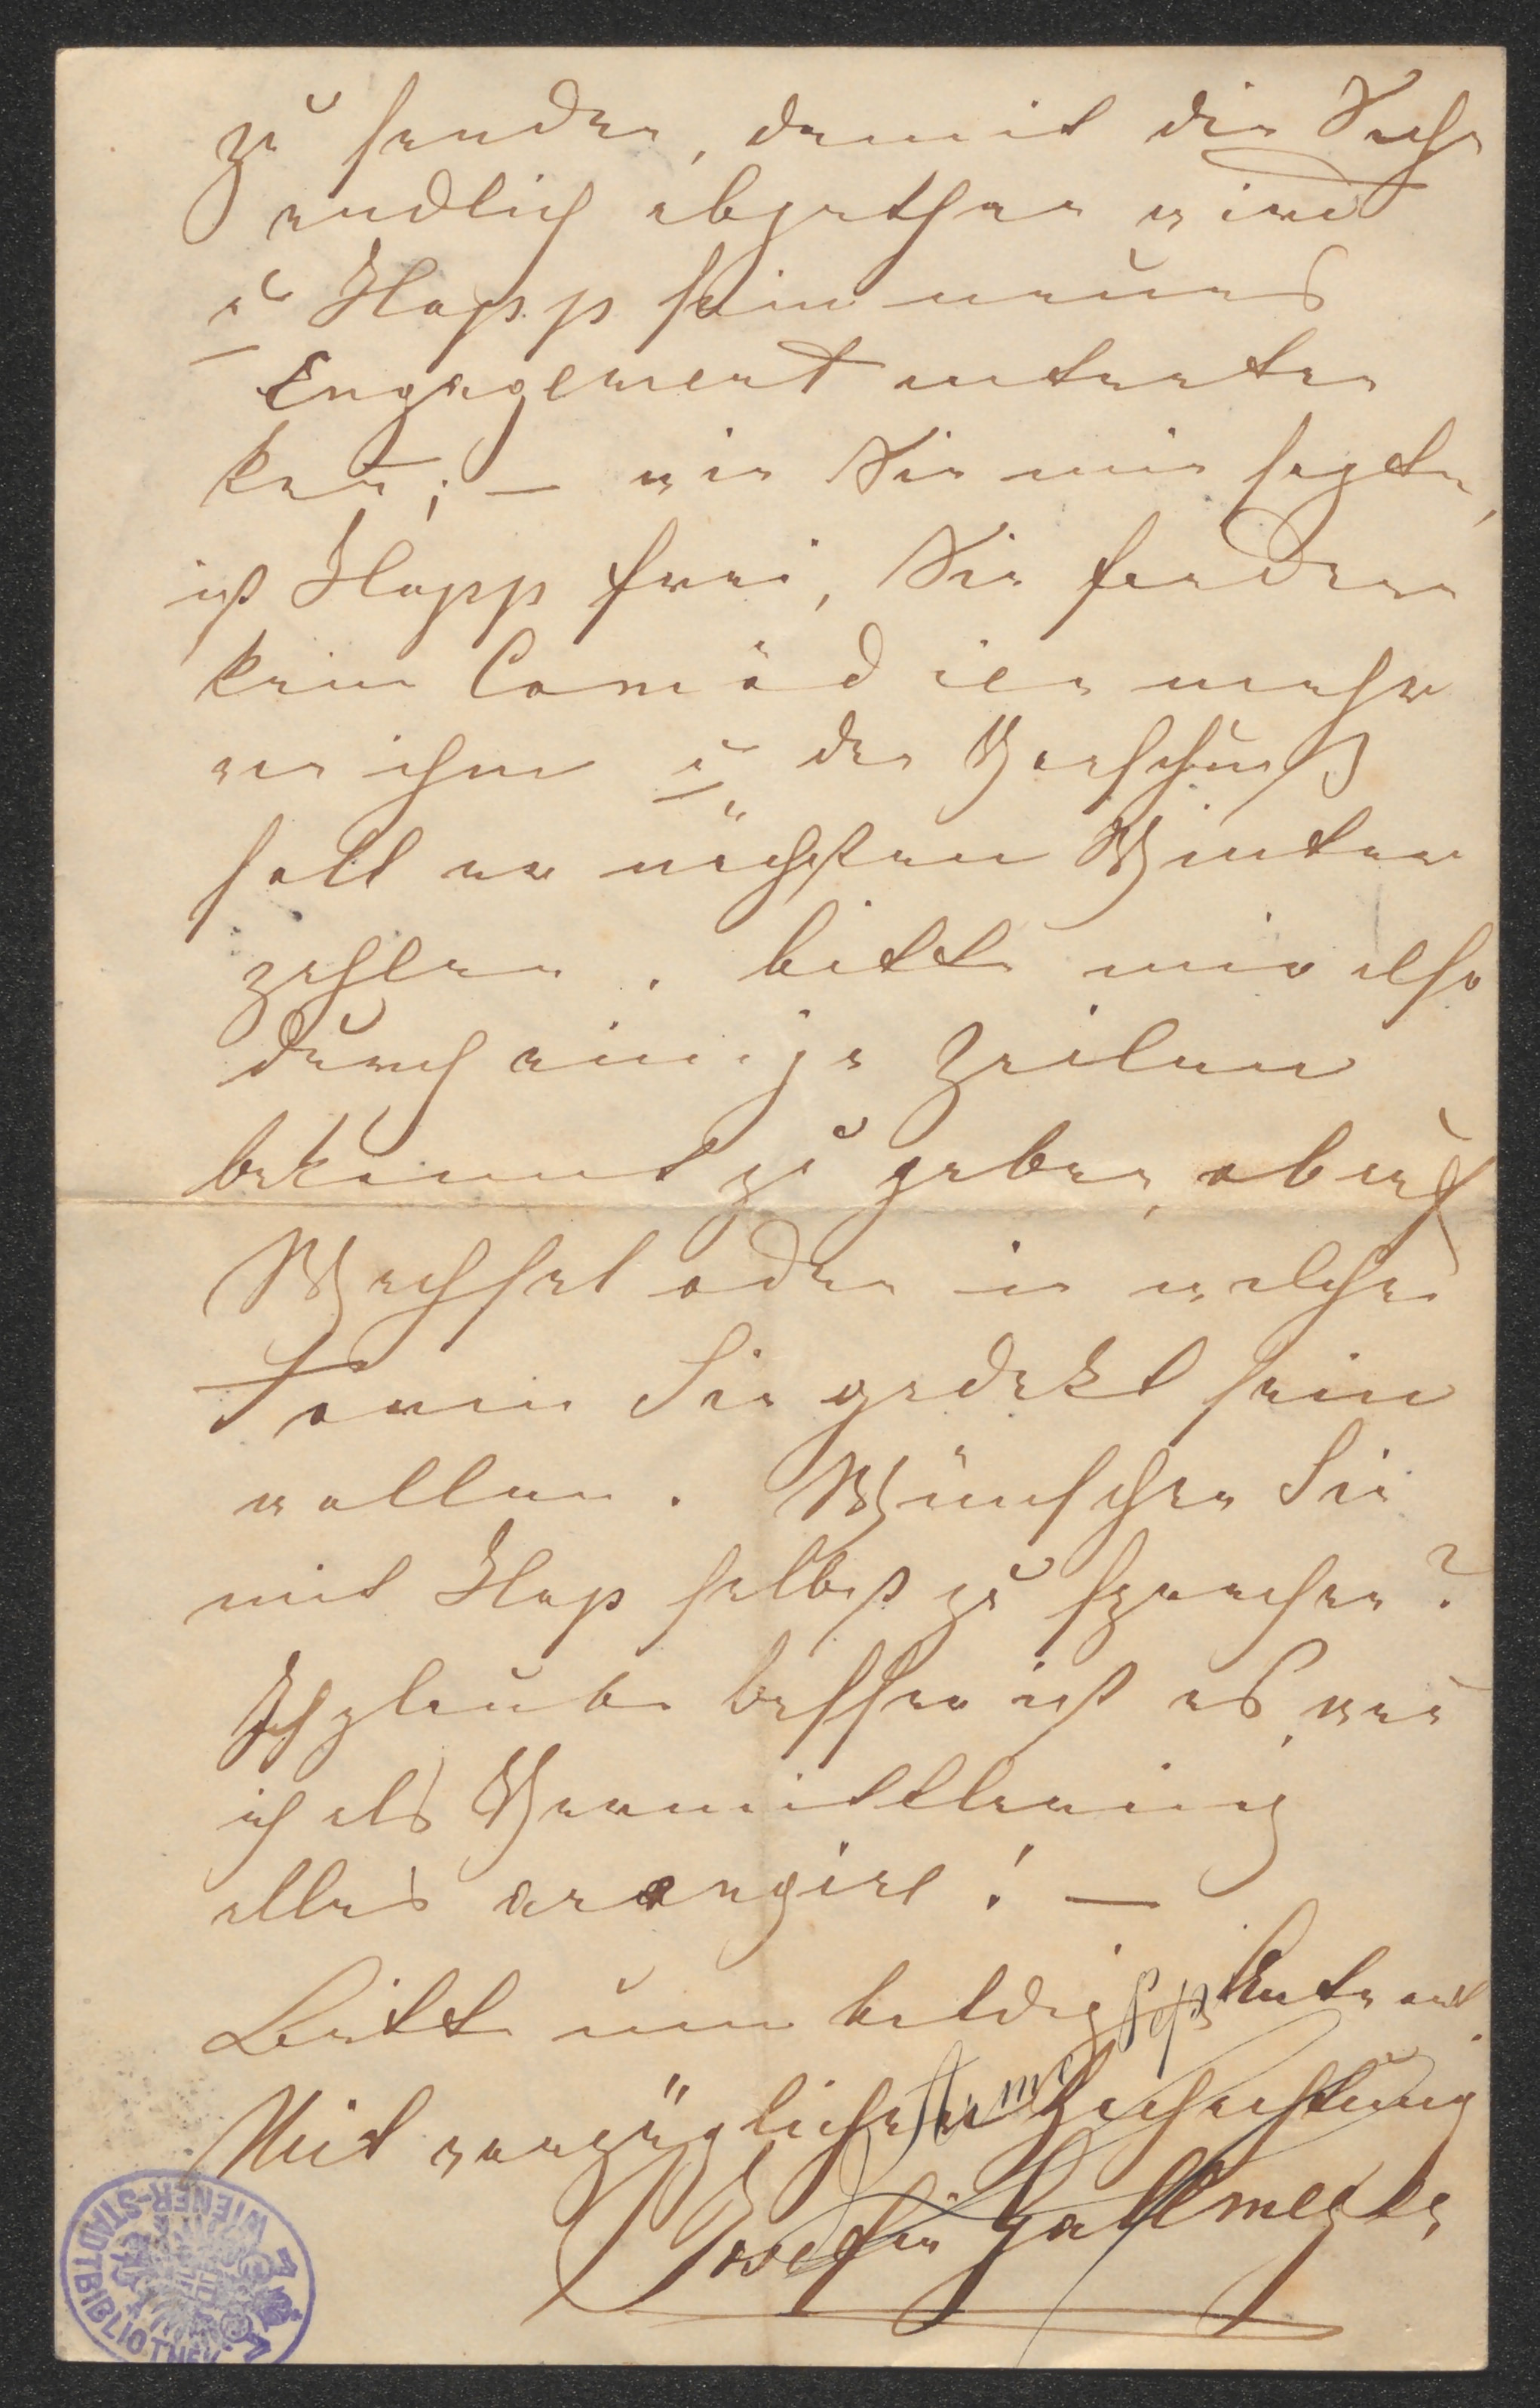 zu senden, damit die Sache
endlich abgethan wird
u Klapp sein neues
Engagement antreten
kan̄; – wie Sie mir sagten,
ist Klapp frei, Sie fordern
kein Comödien mehr
von ihm u den Vorschuß
soll er nächsten Winter
zahlen. bitte mir also
durch einige Zeilen
bekannt zu geben, ob auf
Wechsel oder in welcher
Form Sie gedekt sein
wollen. Wünschen Sie
mit Klap selbst zu sprechen?
Ich glaube besser ist es, wen̄
ich als Vermittlerin
alles arangirt! –
Bitte um baldigste Antwort.
Mit vorzüglicher Hochachtung
Josefin Gallmeyer
WIENER-STADTBIBLIOTHEK